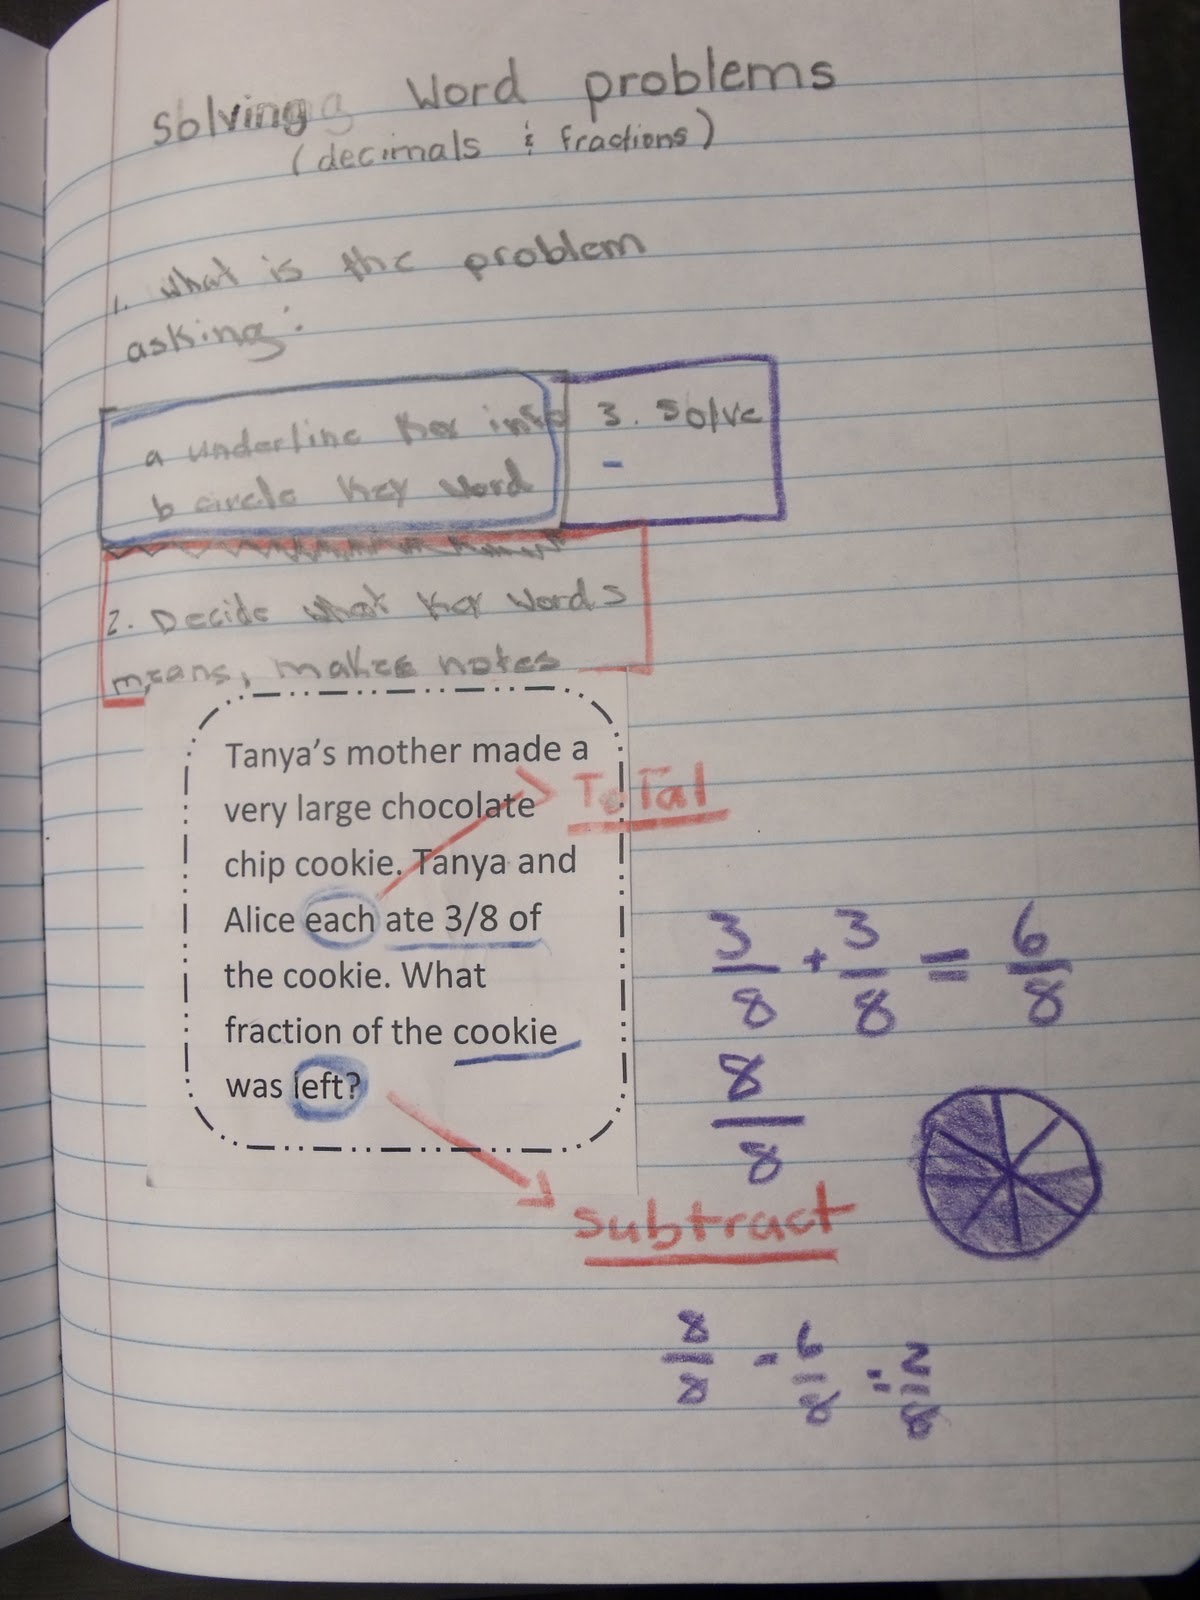 Solving Word problems
(decimals & fractions)
1. What is the problem
asking:
a underline key info
b circle key word
3. Solve
-
2. Decide what key words
means, makes notes
Tanya's mother made a
very large chocolate
chip cookie. Tanya and
Alice each ate 3/8 of
the cookie. What
fraction of the cookie
was left?
ToTal
3/8 + 3/8 = 6/8
8/8
subtract
8/8 - 6/8 = 2/8